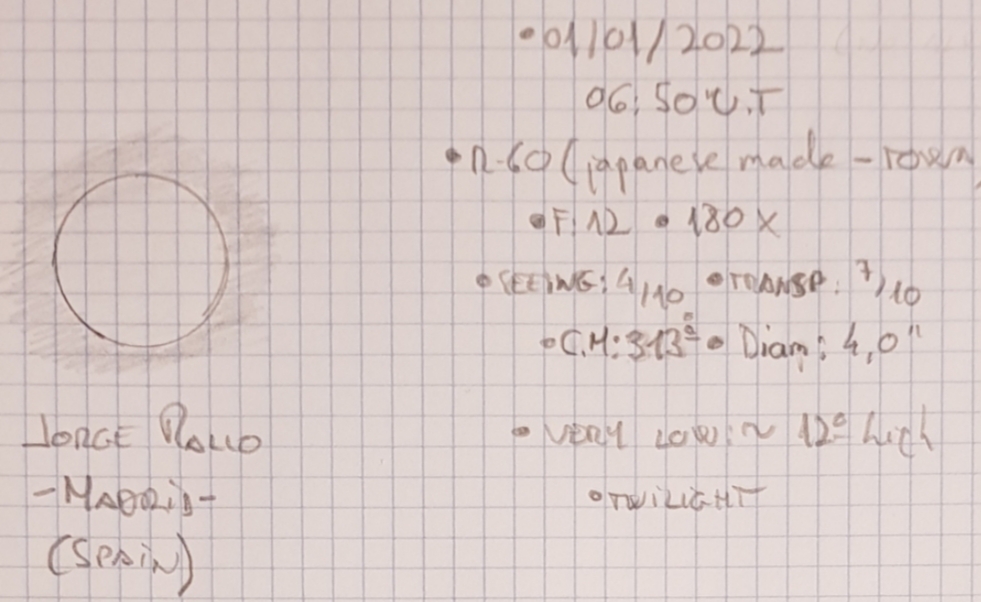 •01/01/2022
06:50 U.T
•R-60 (japanese made - towa
•F:12 •180x
•SEEING: 4/10 •TRANSP: 7/10
•C.M: 313º • Diam: 4,0"
JORGE
•VERY LOW: ~ 12º high
-MADRID-
•TWILIGHT
(SPAIN)